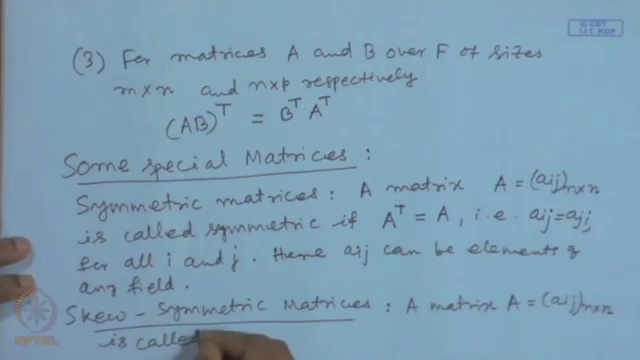 © CET
I.I.T. KGP
(3) For matrices A and B over F of sizes
m×n and n×p respectively
(AB)ᵀ = Bᵀ Aᵀ
Some special Matrices :
Symmetric matrices : A matrix A = (aij)n×n
is called symmetric if Aᵀ = A, i.e. aij = aji,
for all i and j. Here aij can be elements of
any field.
Skew - Symmetric Matrices : A matrix A = (aij)n×n
is called
NPTEL